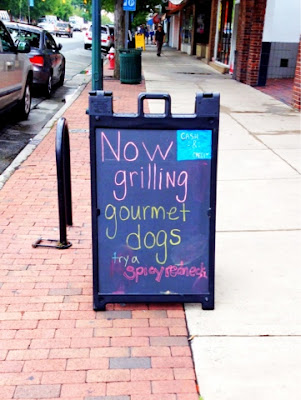 CASH
&
CREDIT
Now
grilling
gourmet
dogs
try a
spicy redneck